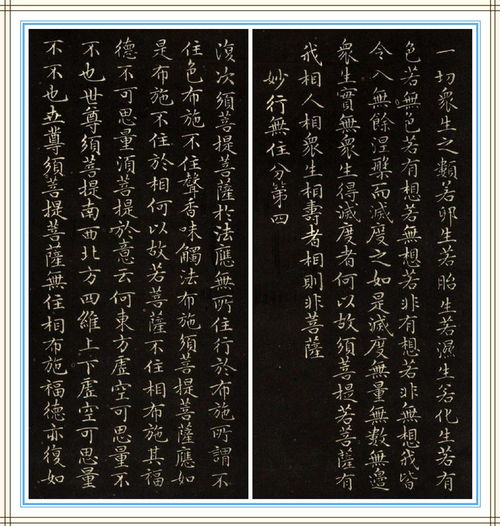 一切衆生之類若卵生若胎生若濕生若化生若有
色若無色若有想若無想若非有想若非無想我皆
令入無餘涅槃而滅度之如是滅度無量無數無邊
衆生實無衆生得滅度者何以故須菩提若菩薩有
我相人相衆生相壽者相則非菩薩
妙行無住分第四
復次須菩提菩薩於法應無所住行於布施所謂不
住色布施不住聲香味觸法布施須菩提菩薩應如
是布施不住於相何以故若菩薩不住相布施其福
德不可思量須菩提於意云何東方虛空可思量不
不也世尊須菩提南西北方四維上下虛空可思量
不不也世尊須菩提菩薩無住相布施福德亦復如